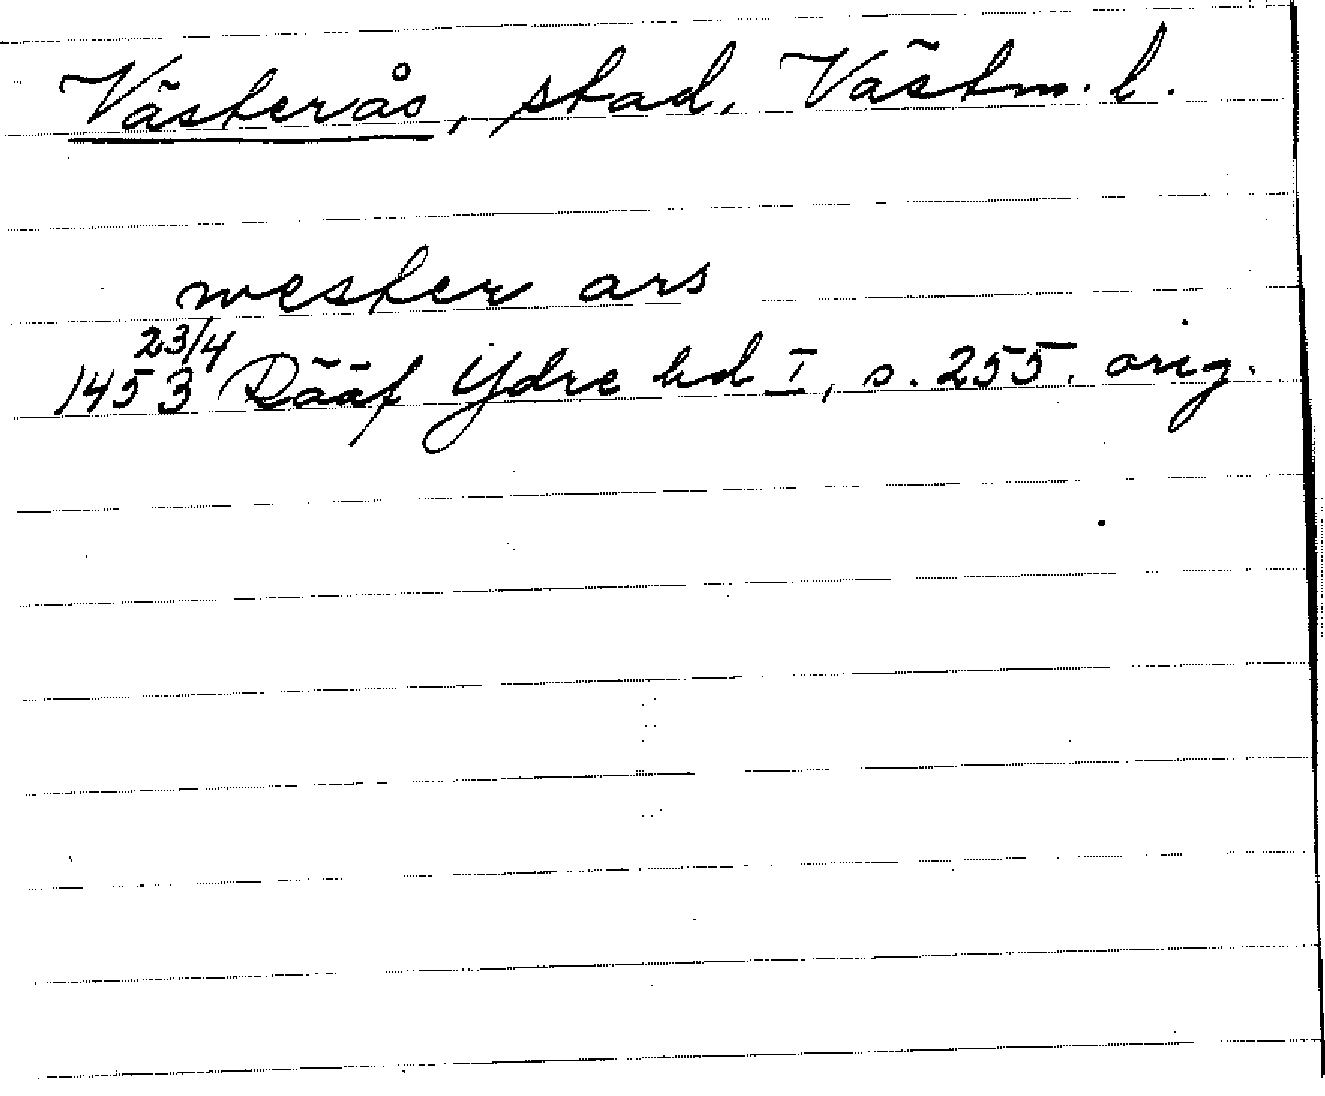 Västerås, stad, Västm. l.
wester ars
23/4
1453 Rääf Ydre hd I, s. 255. orig.